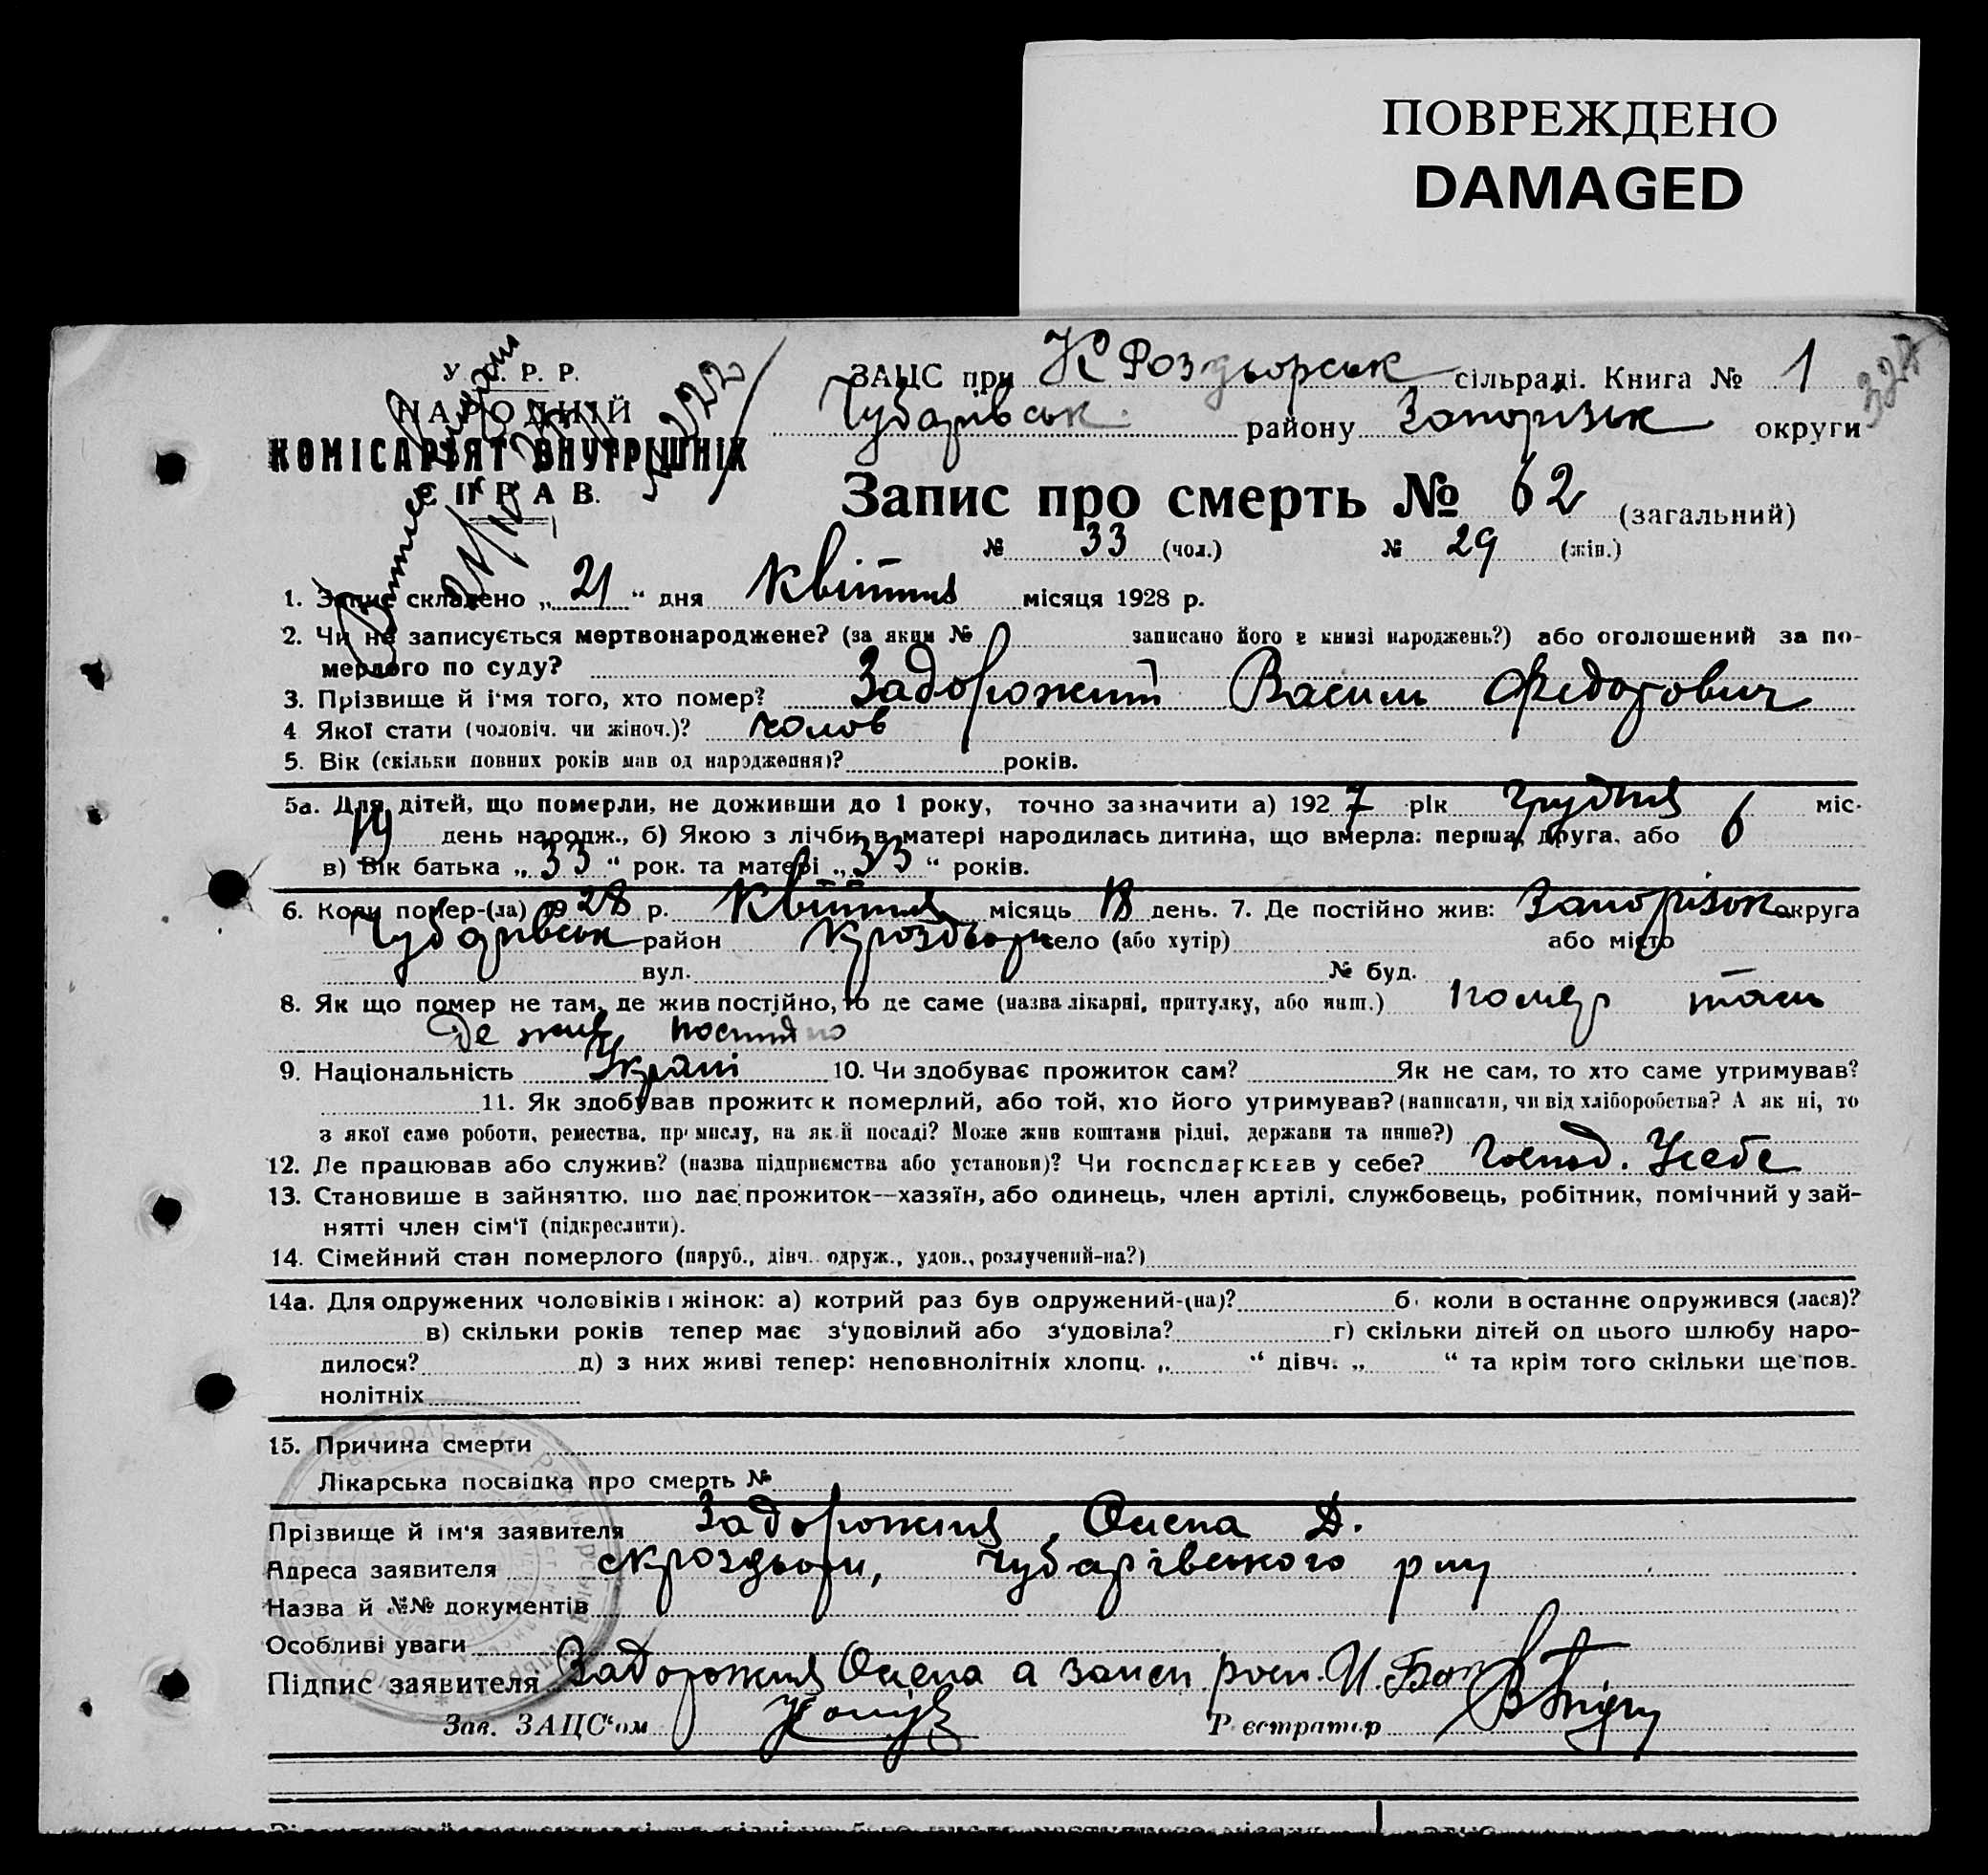 ПОВРЕЖДЕНО
DAMAGED
У. С. Р. Р.
НАРОДНІЙ
КОМІСАРІЯТ ВНУТРІШНІХ
СПРАВ.
ЗАЦС при К Роздьорськ сільраді. Книга № 1
Чубарівськ. району Запорізьк округи
Запис про смерть № 62 (загальний)
№ 33 (чол.) № 29 (жін.)
1. Запис складено „ 21 “ дня квітня місяця 1928 р.
2. Чи не записується мертвонароджене? (за яким № записано його в книзі народжень?) або оголошений за по-
мерлого по суду?
3. Прізвище й і'мя того, хто помер? Задорожній Василь Федорович
4 Якої стати (чоловіч. чи жіноч.)? чолов
5. Вік (скільки повних років мав од народження)? років.
5а. Для дітей, що померли, не доживши до 1 року, точно зазначити а) 1927 рік грудня міс.
19 день народж., б) Якою з лічби в матері народилась дитина, що вмерла: перша, друга, або 6
в) Вік батька „ 33 “ рок. та матері „ 33 “ років.
6. Коли помер-(ла) 1928 р. квітня місяць 18 день. 7. Де постійно жив: Запорізьк округа
Чубарівськ район Кроздьори село (або хутір) або місто
вул. № буд.
8. Як що помер не там, де жив постійно, то де саме (назва лікарні, притулку, або инш.) помер там
де жив постійно
9. Національність Україн 10. Чи здобуває прожиток сам? Як не сам, то хто саме утримував?
11. Як здобував прожиток померлий, або той, хто його утримував? (написати, чи від хліборобства? А як ні, то
з якої саме роботи, ремества, промислу, на якій посаді? Може жив коштами рідні, держави та инше?)
12. Де працював або служив? (назва підприємства або установи)? Чи господарював у себе? Господ. Усебе
13. Становище в зайняттю, що дає прожиток—хазяїн, або одинець, член артілі, службовець, робітник, помічний у зай-
нятті член сім'ї (підкреслити).
14. Сімейний стан померлого (паруб., дівч. одруж., удов., розлучений-на?)
14а. Для одружених чоловіків і жінок: а) котрий раз був одружений-(на)? б) коли в останнє одружився (лася)?
в) скільки років тепер має з'удовілий або з'удовіла? г) скільки дітей од цього шлюбу наро-
дилося? д) з них живі тепер: неповнолітніх хлопц. „ “ дівч. „ “ та крім того скільки ще пов.
нолітніх
15. Причина смерти
Лікарська посвідка про смерть №
Прізвище й ім'я заявителя Задорожня Олена Д.
Адреса заявителя скроздьори, Чубарівського р-ну
Назва й №№ документів
Особливі уваги
Підпис заявителя Задорожня Олена а за неи росп. И.
Зав. ЗАЦС'ом Реєстратор